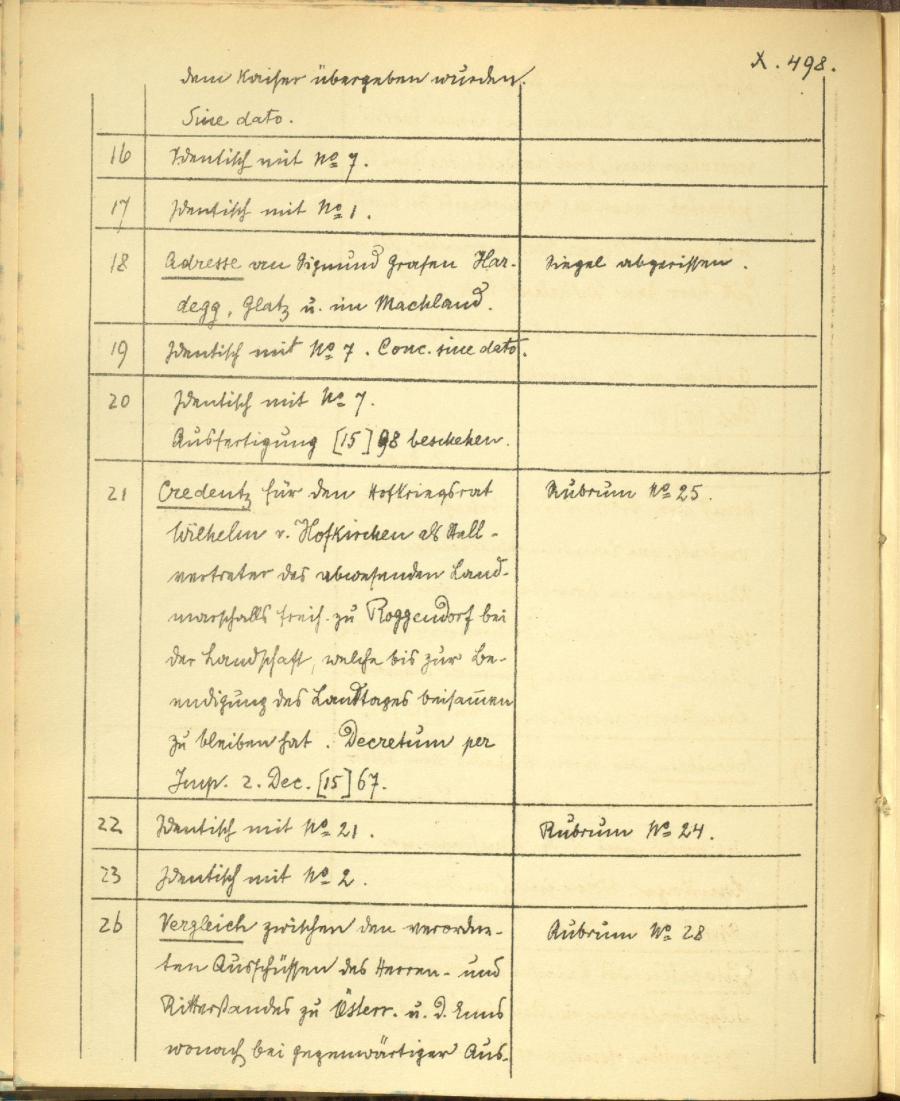 X. 498.
dem Kaiser übergeben wurden.
Sine dato.
16 Identisch mit No 7.
17 Identisch mit No 1.
18 Adresse an Sigmund Grafen Har- Siegel abgerissen.
degg, Glatz u. im Machland.
19 Identisch mit No 7. Conc. sine dato.
20 Identisch mit No 7.
Ausfertigung [15]98 beschehen.
21 Credentz für den Hofkriegsrat Rubrum No 25.
Wilhelm v. Hofkirchen als Stell-
vertreter des abwesenden Land-
marschalls Freih. zu Roggendorf bei
der Landschaft, welche bis zur Be-
endigung des Landtages beisam̅en
zu bleiben hat. Decretum per
Imp. 2. Dec. [15]67.
22 Identisch mit No 21. Rubrum No 24.
23 Identisch mit No 2.
26 Vergleich zwischen den verordne- Rubrum No 28
ten Ausschüssen des Herren- und
Ritterstandes zu Österr. u. d. Enns
wonach bei gegenwärtiger Aus-